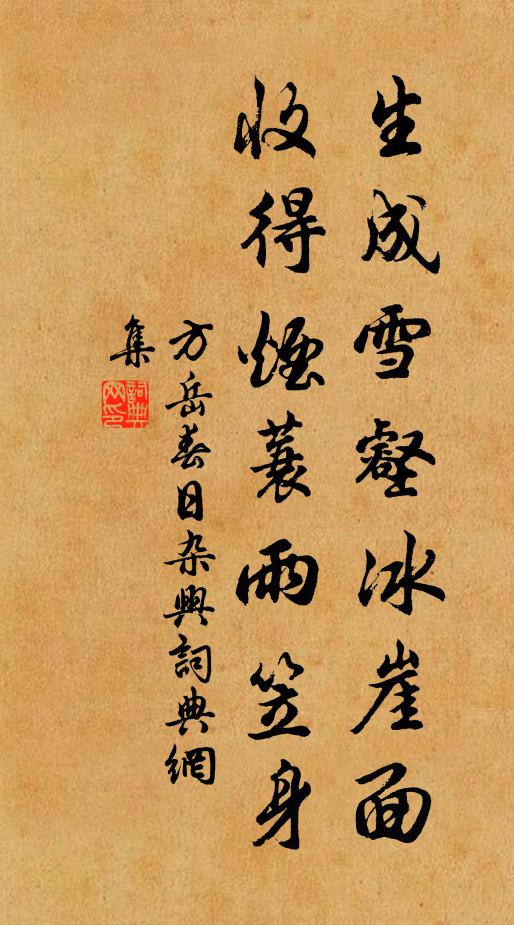 生成雪壑冰崖面
收得煙蓑雨笠身
方岳春日杂興詞典網
集
詞典网印